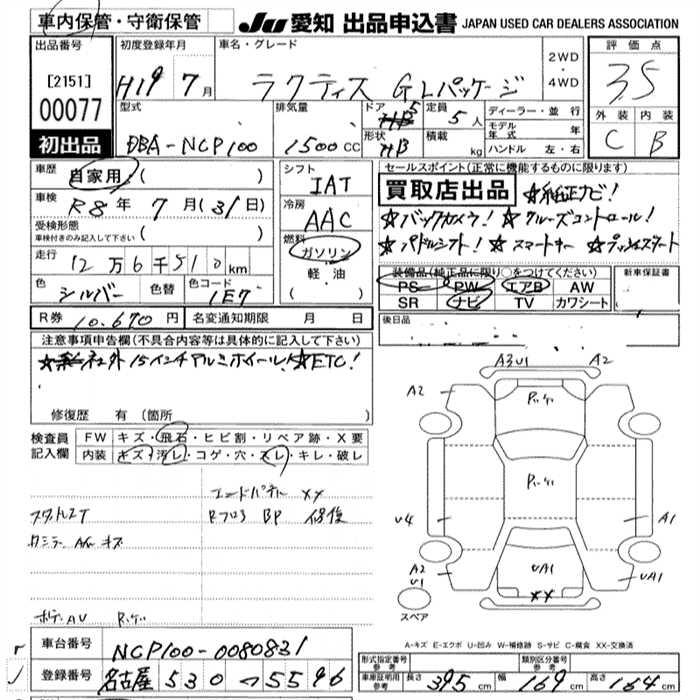 車内保管・守衛保管
JU 愛知 出品申込書 JAPAN USED CAR DEALERS ASSOCIATION
出品番号
[2151]
00077
初出品
初度登録年月
H19 7月
車名・グレード
ラクティス GLパッケージ
2WD
・
4WD
評価点
3.5
外装 内装
C B
型式
DBA-NCP100
排気量
1500cc
ドア
5
形状
HB
定員
5人
積載 kg
ディーラー・並行
モデル年式 年
ハンドル 左・右
車歴
自家用 ( )
車検
R8年 7月(31日)
受検形態
車検付きのみ記入して下さい ( )
走行
12万6千510km
色
シルバー
色替
色コード
1E7
シフト
IAT
冷房
AAC
燃料
ガソリン
軽油
( )
セールスポイント(正常に機能するものに限ります)
買取店出品 ☆純正ナビ!
☆バックカメラ! ☆クルーズコントロール!
☆パドルシフト! ☆スマートキー ☆プッシュスタート
装備品(純正品に限り○をつけてください)
PS PW エアB AW
SR ナビ TV カワシート
新車保証書
後日品
R券 10,670円 名変通知期限 月 日
注意事項申告欄(不具合内容等は具体的に記入して下さい)
社外15インチアルミホイール! ☆ETC!
修復歴 有(箇所
検査員記入欄
FW キズ・飛石・ヒビ割・リペア跡・X要
内装 キズ・汚レ・コゲ・穴・スレ・キレ・破レ
コードパネル XX
Rフロア BP 修復
A3 U1 A2
A2
U4 A1
UA1
XX
A2
U1
UA1
スペア
A-キズ E-エクボ U-凹み W-補修跡 S-サビ C-腐食 XX-交換済
車台番号 NCP100-0080831
登録番号 名古屋 530 つ 5596
形式指定番号
参考
類別区分番号
参考
車庫証明用
参考
長さ 395cm 幅 169cm 高さ 164cm